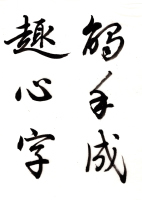 觸手成
趣心字